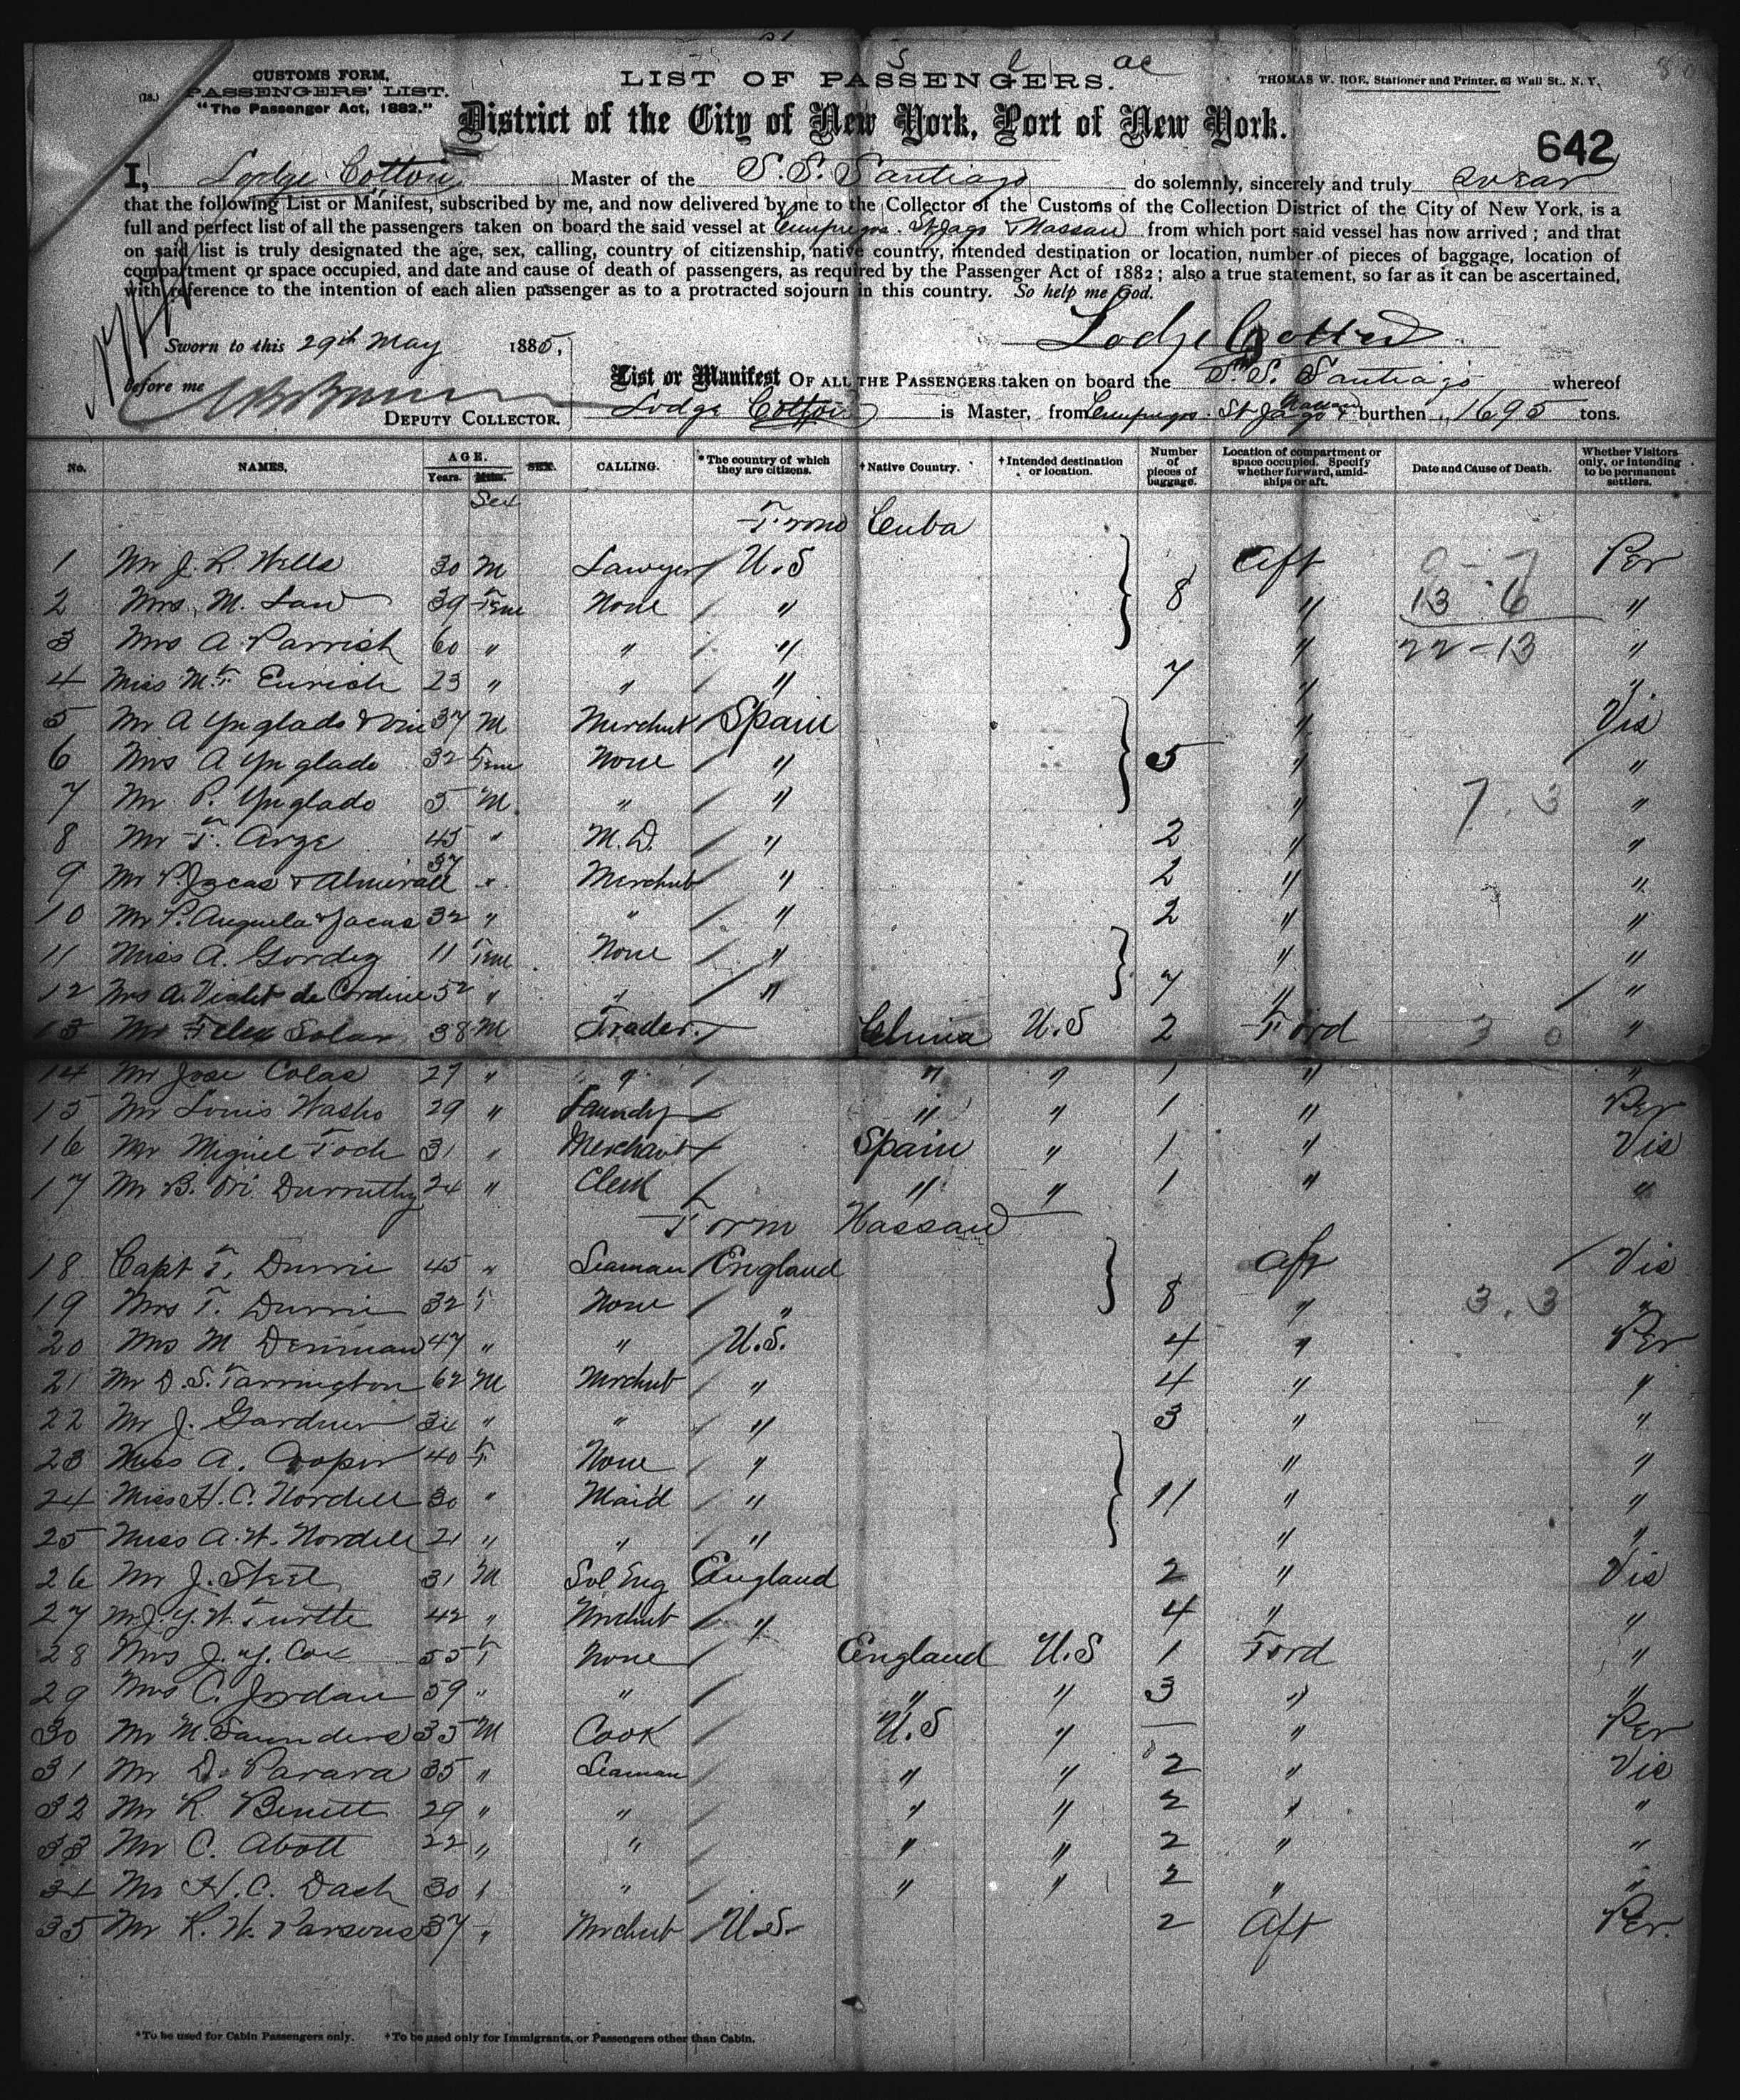 CUSTOMS FORM.
PASSENGERS' LIST.
(18.)
"The Passenger Act, 1882."
LIST OF PASSENGERS.
THOMAS W. ROE, Stationer and Printer, 63 Wall St., N. Y.
District of the City of New York, Port of New York.
642
I, Lodge Cotton Master of the S.S. Santiago do solemnly, sincerely and truly swear
that the following List or Manifest, subscribed by me, and now delivered by me to the Collector of the Customs of the Collection District of the City of New York, is a
full and perfect list of all the passengers taken on board the said vessel at St Jago & Nassau from which port said vessel has now arrived; and that
on said list is truly designated the age, sex, calling, country of citizenship, native country, intended destination or location, number of pieces of baggage, location of
compartment or space occupied, and date and cause of death of passengers, as required by the Passenger Act of 1882; also a true statement, so far as it can be ascertained,
with reference to the intention of each alien passenger as to a protracted sojourn in this country. So help me God.
Lodge Cotton
Sworn to this 29th May 1885,
before me
DEPUTY COLLECTOR.
List or Manifest OF ALL THE PASSENGERS taken on board the S.S. Santiago whereof
Lodge Cotton is Master, from St Jago & Nassau burthen 1695 tons.
No. NAMES. AGE. Years. Mths. SEX. CALLING. *The country of which they are citizens. †Native Country. †Intended destination or location. Number of pieces of baggage. Location of compartment or space occupied. Specify whether forward, amidships or aft. Date and Cause of Death. Whether Visitors only, or intending to be permanent settlers.
Sex
From Cuba
1 Mr J. R. Wells 30 M Lawyer U.S Aft Per
2 Mrs M. Law 39 Fem None " 8 " 13 6 "
3 Mrs A Parrish 60 " " " " 22-13 "
4 Miss M. F. Eurich 23 " " " 7 " "
5 Mr A Ynglado & 37 M Merchnt Spain " Vis
6 Mrs A Ynglado 32 Fem None " 5 " "
7 Mr P. Ynglado 5 M " " " 7.3 "
8 Mr F. Arge 45 " M.D. " 2 " "
9 Mr P. Jacas & Almirall 37 " Merchnt " 2 " "
10 Mr P. Auguela & Jacas 32 " " " 2 " "
11 Miss A. Gordey 11 Fem None " " "
12 Mrs A. Violet de Cordine 52 " " " 7 " "
13 Mr Felex Solar 38 M Trader China U.S 2 Ford 3 0 "
14 Mr Jose Colas 27 " " " " 1 " "
15 Mr Louis Washo 29 " Laundry " " 1 " Per
16 Mr Miguel Foch 31 " Merchant Spain " 1 " Vis
17 Mr B. Durruthy 24 " Clerk " " 1 " "
Form Nassau
18 Capt F. Durrie 45 " Seaman England Aft Vis
19 Mrs F. Durrie 32 F None " 8 " 3.3 "
20 Mrs M Denman 47 " " U.S. 4 " Per
21 Mr D. S. Farrington 62 M Mrchnt " 4 " "
22 Mr J. Gardner 34 " " " 3 " "
23 Miss A. Cooper 40 F None " " "
24 Miss H. C. Nordell 30 " Maid " 11 " "
25 Miss A. W. Nordell 21 " " " " "
26 Mr J. Steel 31 M England 2 " Vis
27 Mr J. Y. W. Turtle 42 " Mrchnt " 4 " "
28 Mrs J. Y. Cox 55 F None England U.S 1 Ford "
29 Mrs C. Jordan 59 " " " " 3 " "
30 Mr M. Saunders 35 M Cook U.S " — " Per
31 Mr D. Parara 35 " Seaman " " 2 " Vis
32 Mr R. Benett 29 " " " " 2 " "
33 Mr C. Abott 22 " " " " 2 " "
34 Mr H. C. Dash 30 " " " " 2 " "
35 Mr R. W. Parsons 37 " Mrchnt U.S. 2 Aft Per.
*To be used for Cabin Passengers only. †To be used only for Immigrants, or Passengers other than Cabin.